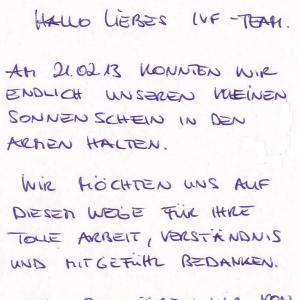 HALLO LIEBES IVF-TEAM.
AM 21.02.13 KONNTEN WIR
ENDLICH UNSEREN KLEINEN
SONNENSCHEIN IN DEN
ARMEN HALTEN.
WIR MÖCHTEN UNS AUF
DIESEM WEGE FÜR IHRE
TOLLE ARBEIT, VERSTÄNDNIS
UND MITGEFÜHL BEDANKEN.